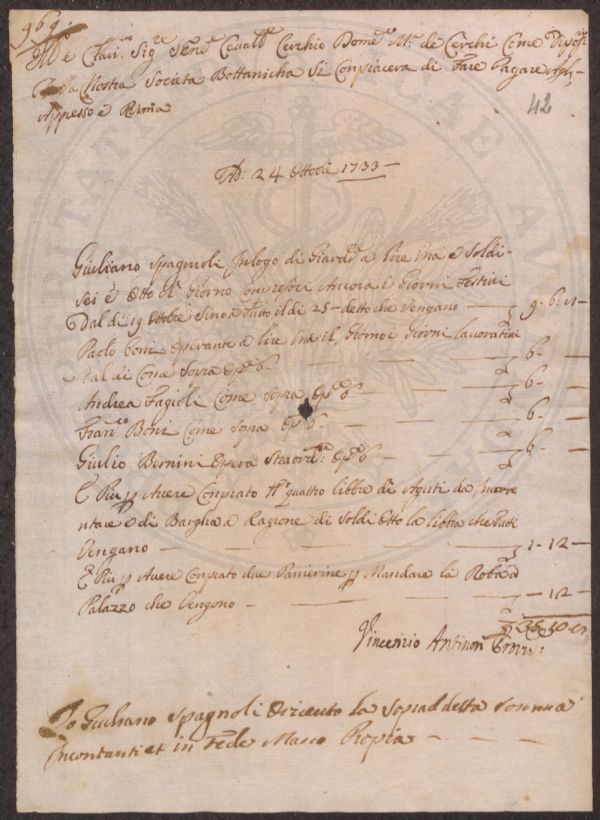 969.
Ill.e e Clariss.o Sig.re Sen.re Cavall.e Cerchio Dom.co M.a de Cerchi Come Deposi.o
Della Nostra Societa Bottanicha Si Conpiacera di Fare Pagare Apl.
Appresso e Prima
42
Ad: 24 Ottobre 1733 —
Giuliano Spagnoli In logo di Giard.re a lire Una e Soldi
Sei e Otto il Giorno Conpresoci Ancora i Giorni Festivi
Dal di 19 Ottobre Sino a Tutto il di 25 — detto che Vengano — 9 . 6 : 8 —
Paolo Boni Operante a lire Una il Giorno i Giorni lavorativi
dal di Come Sopra Op.e 6 — 6 — —
Andrea Fagioli Come Sopra Op.e 6 — 6 — —
Fran.co Boni Come Sopra Op.e 6 — 6 — —
Giulio Bernini Opera Straord.a Op.e 6 — 6 — —
E Piu p Avere Conprato quattro libbre di Aguti da
e di a Ragione di Soldi Otto la libbra che Tutti
Vengano — 1 - 12 —
E Piu p Avere Conprato due Panierine p Mandare la Roba a
Palazzo che Vengono — — 12 —
Vincenzio Antinori
Io Giuliano Spagnoli O riceuto la Sopraddetta Somma
In contanti et in Fede Mano Propia — — —